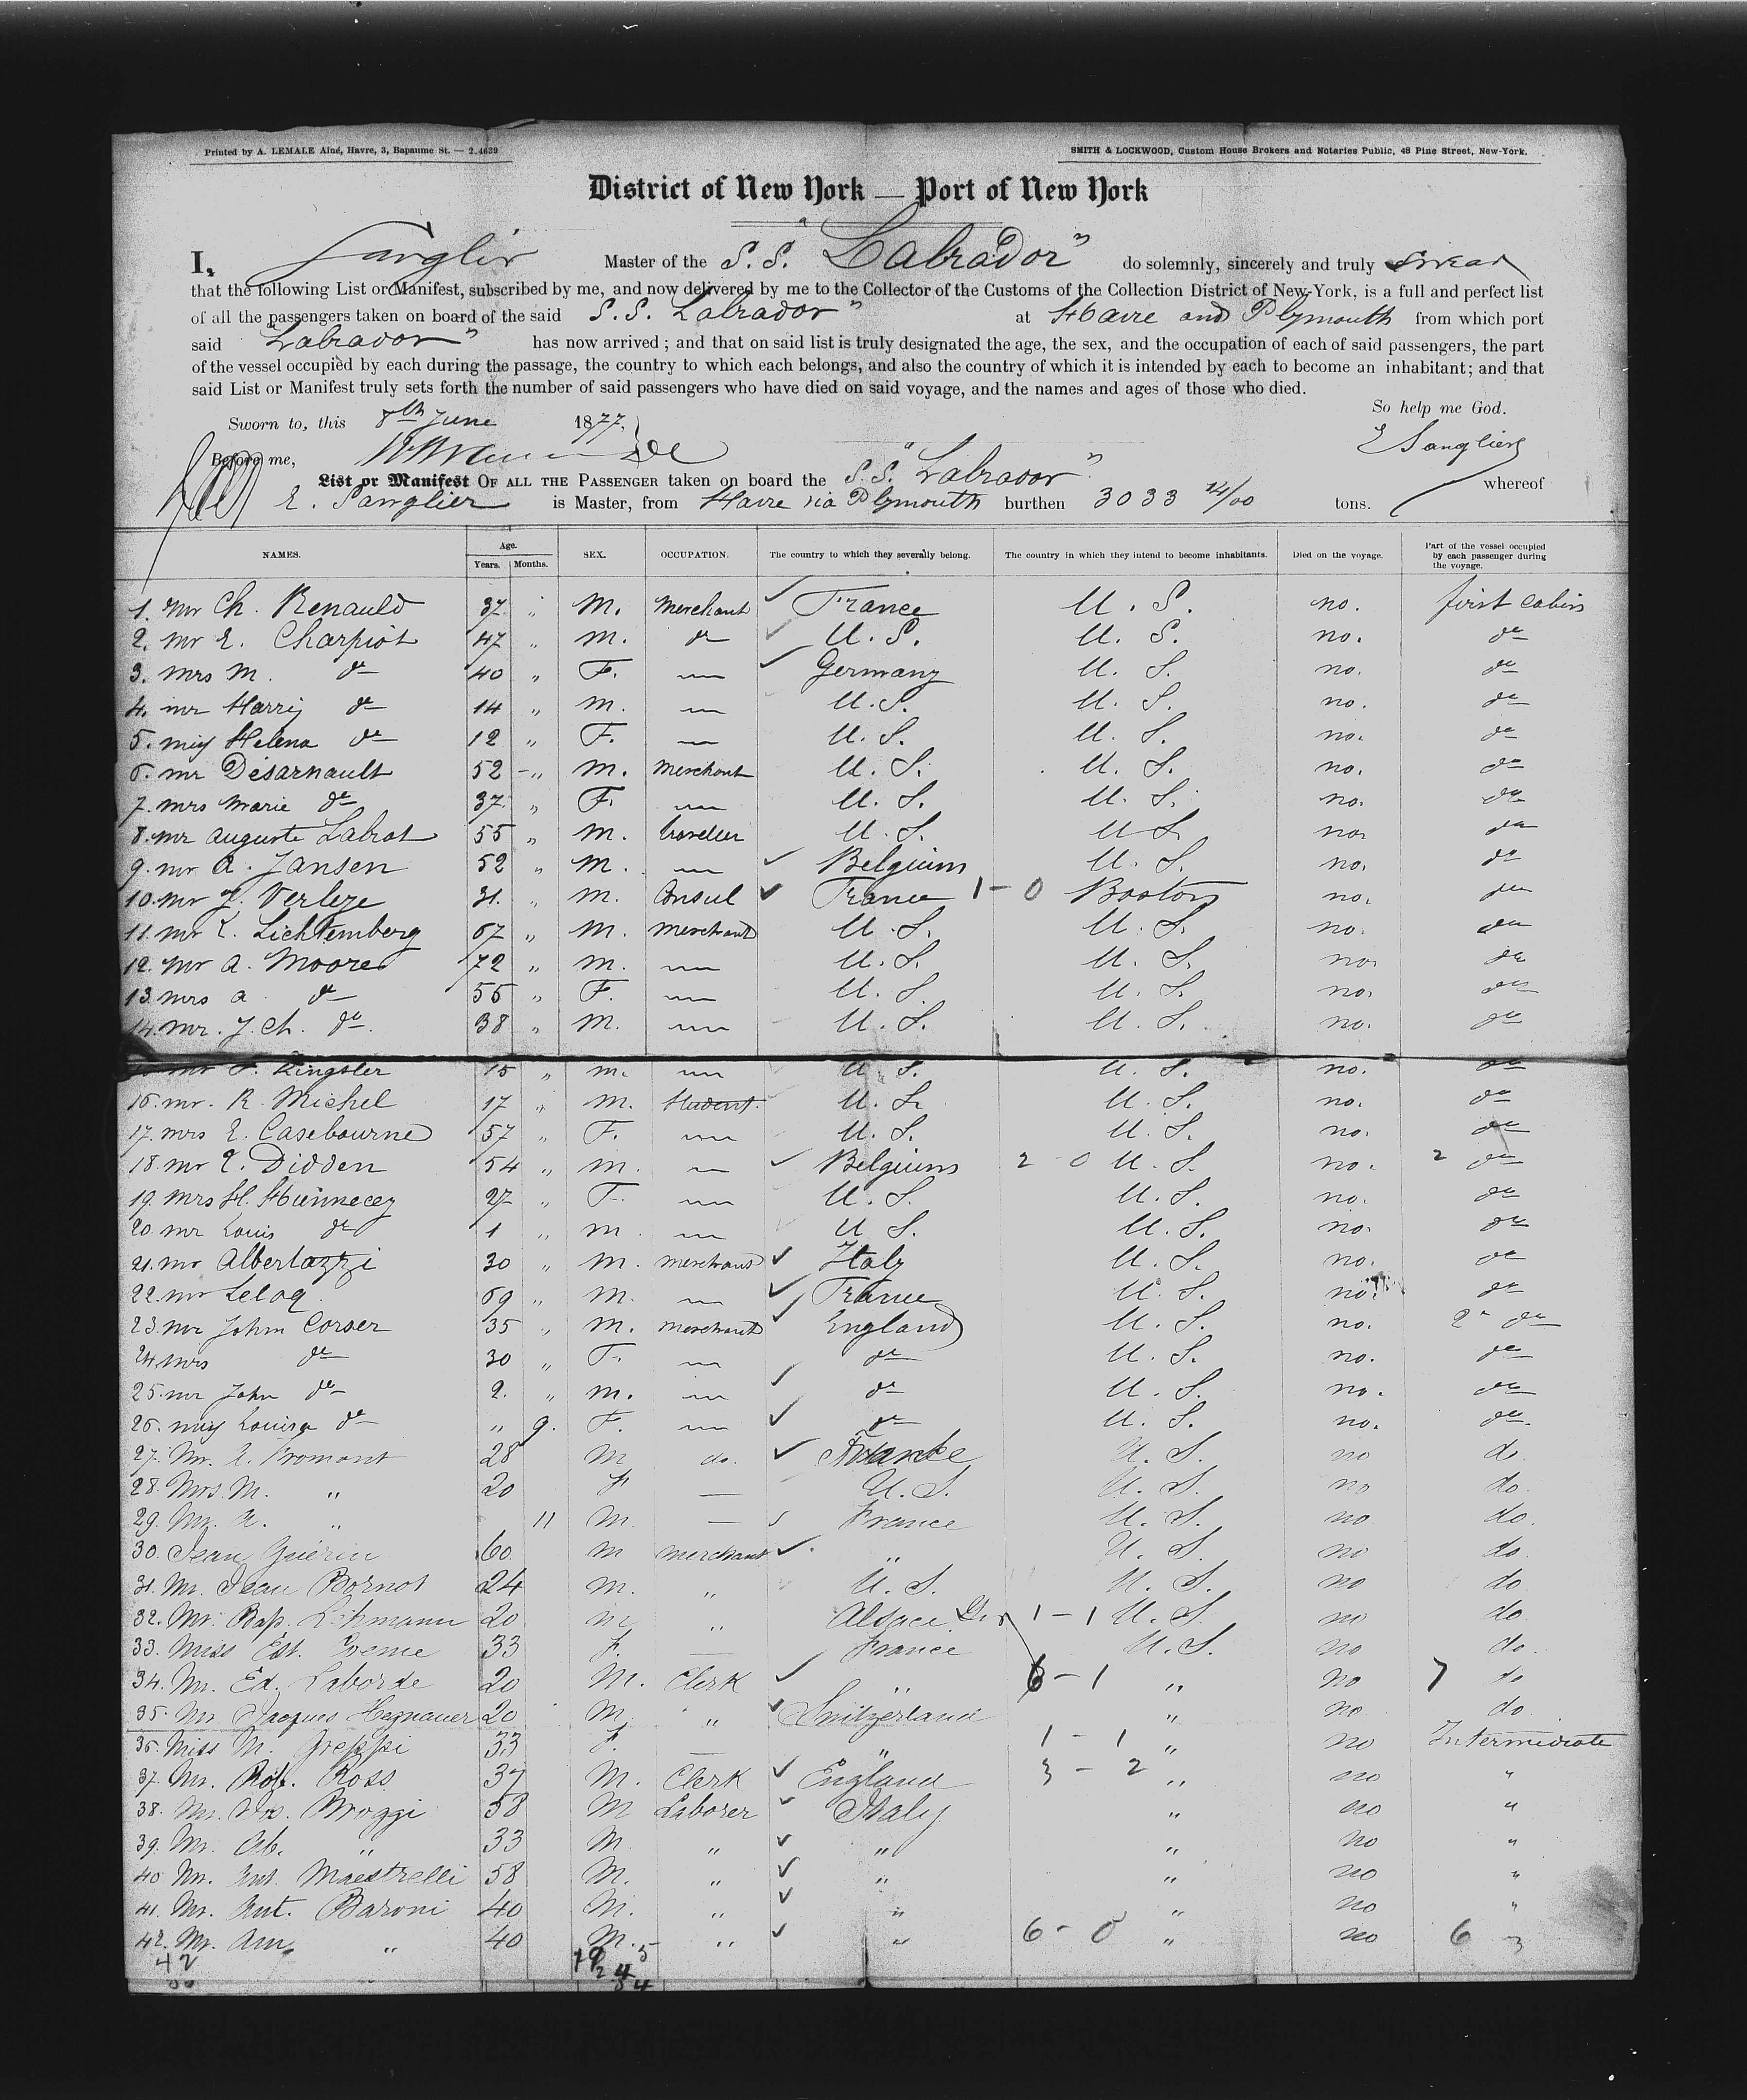 Printed by A. LEMALE Aîné, Havre, 3, Bapaume St. — 2.4639
SMITH & LOCKWOOD, Custom House Brokers and Notaries Public, 48 Pine Street, New-York.
District of New York — Port of New York
I, Sanglier Master of the S.S. "Labrador" do solemnly, sincerely and truly swear
that the following List or Manifest, subscribed by me, and now delivered by me to the Collector of the Customs of the Collection District of New-York, is a full and perfect list
of all the passengers taken on board of the said S.S. Labrador" at Havre and Plymouth from which port
said Labrador" has now arrived ; and that on said list is truly designated the age, the sex, and the occupation of each of said passengers, the part
of the vessel occupied by each during the passage, the country to which each belongs, and also the country of which it is intended by each to become an inhabitant; and that
said List or Manifest truly sets forth the number of said passengers who have died on said voyage, and the names and ages of those who died.
So help me God.
Sworn to, this 8th June 1877.
E Sanglier
Before me,
List or Manifest OF ALL THE PASSENGER taken on board the S.S. "Labrador" whereof
E. Sanglier is Master, from Havre via Plymouth burthen 3033 14/00 tons.
NAMES. Age. Years. Months. SEX. OCCUPATION. The country to which they severally belong. The country in which they intend to become inhabitants. Died on the voyage. Part of the vessel occupied by each passenger during the voyage.
1. Mr Ch. Renauld 37 " M. Merchant ✓ France U. S. no. first cabin
2. Mr E. Charpiot 47 " M. do ✓ U. S. U. S. no. do
3. Mrs M. do 40 " F. — ✓ Germany U. S. no. do
4. mr Harry do 14 " M. — U. S. U. S. no. do
5. miss Helena do 12 " F. — U. S. U. S. no. do
6. mr Desarnault 52 " M. Merchant U. S. U. S. no. do
7. mrs Marie do 37 " F. — U. S. U. S. no. do
8. mr auguste Labrot 55 " M. traveller U. S. U S. no. do
9. mr A. Jansen 52 " M. — ✓ Belgium U. S. no. do
10. mr Verleye 31. " M. Consul ✓ France 1 - 0 Boston no. do
11. mr E. Lichtemberg 67 " M. Merchant U. S. U. S. no. do
12. mr A. Moore 72 " M. — U. S. U. S. no. do
13. mrs a do 55 " F. — U. S. U. S. no. do
14. mr. J. Ch. do. 38 " M. — U. S. U. S. no. do
mr F. Kingsler 15 " m. — U. S. U. S. no. do
16. mr. R. Michel 17 " M. Student. U. S. U. S. no. do
17. mrs E. Casebourne 57 " F. — U. S. U. S. no. do
18. mr E. Didden 54 " M. — ✓ Belgium 2 0 U. S. no. 2 do
19. mrs H. Hünnecey 27 " F. — U. S. U. S. no. do
20. mr Louis do 1 " m. — U S. U. S. no. do
21. mr Albertazzi 30 " M. merchant ✓ Italy U. S. no. do
22. mr Leloq. 69 " M. — ✓ France U. S. no. do
23. mr John Corser 35 " M. merchant ✓ England U. S. no. 2n do
24. mrs do 30 " F. — ✓ do U. S. no. do
25. mr John do 2. " m. — ✓ do U. S. no. do
26. miss Louisa do " 9. F. — ✓ do U. S. no. do.
27. Mr. E. Fromont 28 M do. ✓ France U. S. no do
28. Mrs. M. " 20 F — U. S. U. S. no do.
29. Mr. " 11 M. — France U. S. no do.
30. Jean Guérin 60 M merchant ✓ " U. S. no do
31. Mr. Jean Bornot 24 M. " U. S. U. S. no do
32. Mr. Bap. Lehmann 20 M " Alsace Ger 1 - 1 U. S. no do
33. Miss Est. 33 F. — France U. S. no do.
34. Mr. Ed. Laborde 20 M. Clerk ✓ " 6 - 1 " no 7 do
35. Mr. Jacques Hegnauer 20 M. " ✓ Switzerland " no do
36. Miss M. Greppi 33 F. — " 1 - 1 " no Intermediate
37. Mr. Rob. Ross 37 M. Clerk ✓ England 3 - 2 " no "
38. Mr. Broggi 58 M Laborer ✓ Italy " no "
39. Mr. " 33 M. " ✓ " " no "
40 Mr. Ant. Maestrelli 58 M. " ✓ " " no "
41. Mr. Ant. Baroni 40 M. " ✓ " " no "
42. Mr. Am. " 40 M. " ✓ " 6 - 0 " no 6
42